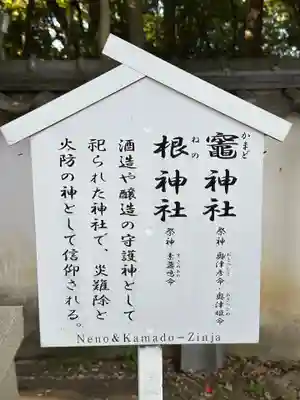 かまど
竈神社 祭神 奥津彦命・奥津姫命
ねの
根神社 祭神 素盞嗚命
すさのおの
酒造や醸造の守護神として
祀られた神社で、炎難除と
火防の神として信仰される。
Neno&Kamado-Zinja